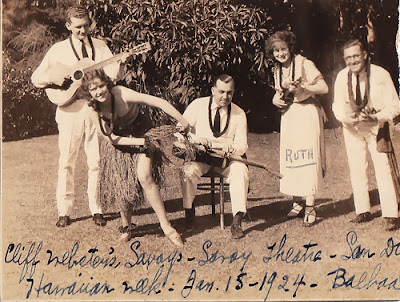 RUTH
Cliff Webster's Savoys - Savoy Theatre - San D
Hawaiian week - Jan. 15 - 1924 - Balboa